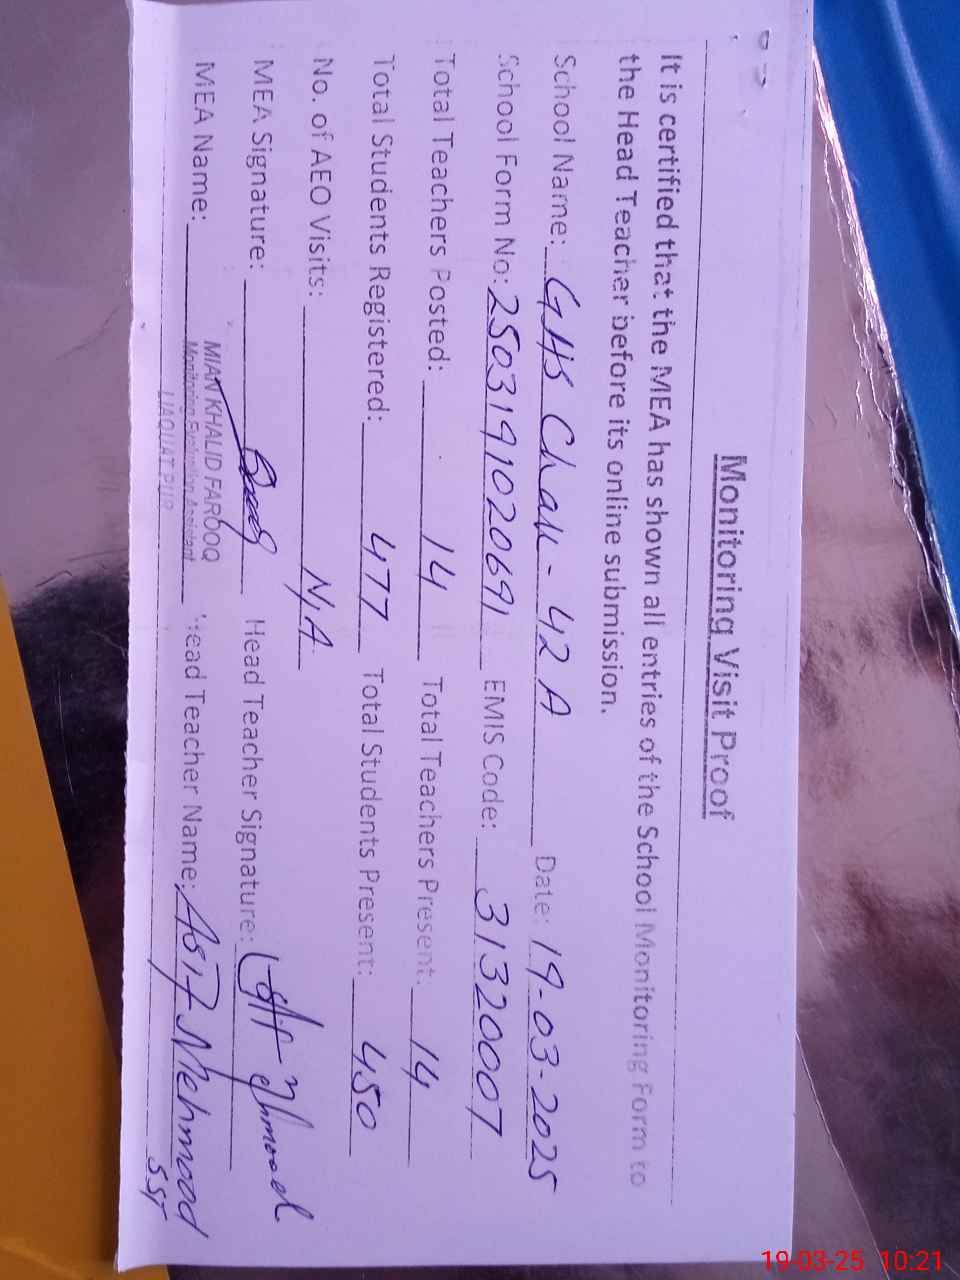 Monitoring Visit Proof
It is certified that the MEA has shown all entries of the School Monitoring Form to
the Head Teacher before its online submission.
School Name: GHS Chak - 42 A Date: 19-03-2025
School Form No: 2503191020691 EMIS Code: 31320007
Total Teachers Posted: 14 Total Teachers Present: 14
Total Students Registered: 477 Total Students Present: 450
No. of AEO Visits: N/A
MEA Signature: Head Teacher Signature: Asif Mehmood
MEA Name: MIAN KHALID FAROOQ Head Teacher Name: Asif Mehmood
Monitoring Evaluation Assistant
LIAQUAT PUR
SST
19-03-25 10:21